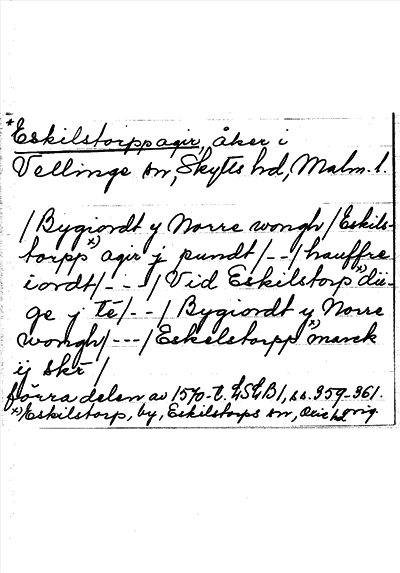 *Eskilstorppagir, åker i
Vellinge sn, Skytts hd, Malm. l.
/Bygiordt y Norre wongh/Eskils-
torpp x) agir j pundt/--/hauffre
iordt/---/Vid Eskilstorp x) dii-
ge j tē/--/Bygiordt y Norre
wongh/---/Eskelstorpp x) marck
ij skr̄/
förra delen av 1570-t. LSLB1, ss. 359-361.
x)Eskilstorp, by, Eskilstorps sn, Oxie hd orig